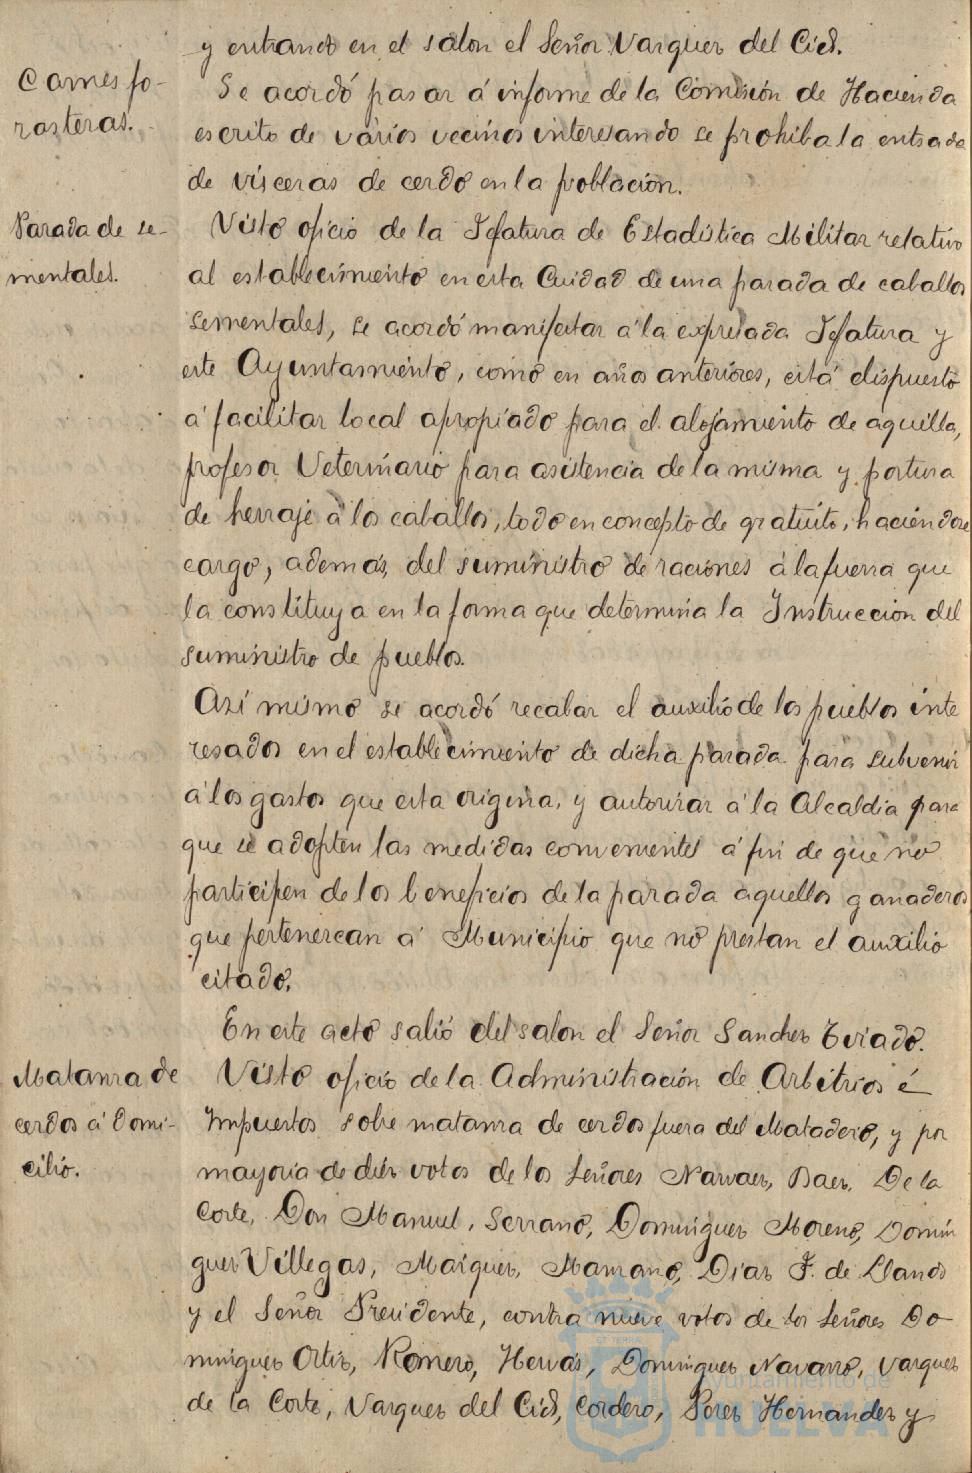 y entrando en el salon el Señor Vazquez del Cid.
Carnes fo-
rasteras.
Se acordó pasar á informe de la Comisión de Hacienda
escrito de vários vecinos interesando se prohiba la entrada
de vísceras de cerdo en la población.
Parada de se-
mentales.
Visto oficio de la Jefatura de Estadística Militar relativo
al establecimiento en esta Ciudad de una parada de caballos
sementales, se acordó manifestar á la expresada Jefatura y
este Ayuntamiento, como en años anteriores, está dispuesto
á facilitar local apropiado para el alojamiento de aquella,
profesor Veterinario para asistencia de la misma y postura
de herraje á los caballos, todo en concepto de gratuito, haciéndose
cargo, además, del suministro de raciones á la fuerza que
la constituya en la forma que determina la Instrucción del
suministro de pueblos.
Así mismo se acordó recabar el auxilio de los pueblos inte
resados en el establecimiento de dicha parada para subvenir
á los gastos que esta origina, y autorizar á la Alcaldía para
que se adopten las medidas convenientes á fin de que no
participen de los beneficios de la parada aquellos ganaderos
que pertenezcan á Municipio que no prestan el auxilio
citado.
En este acto salió del salon el Señor Sanchez Tirado.
Matanza de
cerdos á domi-
cilio.
Visto oficio de la Administración de Arbitrios é
Impuestos sobre matanza de cerdos fuera del Matadero, y por
mayoria de diez votos de los Señores Narvaez, Baez, De la
Corte, Don Manuel, Serrano, Dominguez Moreno, Domin
guez Villegas, Márquez, Manzano, Diaz F. de Llanos
y el Señor Presidente, contra nueve votos de los Señores Do-
minguez Ortiz, Romero, Hervás, Dominguez Navarro, Vazquez
de la Corte, Vazquez del Cid, Cordero, Perez Hernandez y
Ayuntamiento de
HUELVA